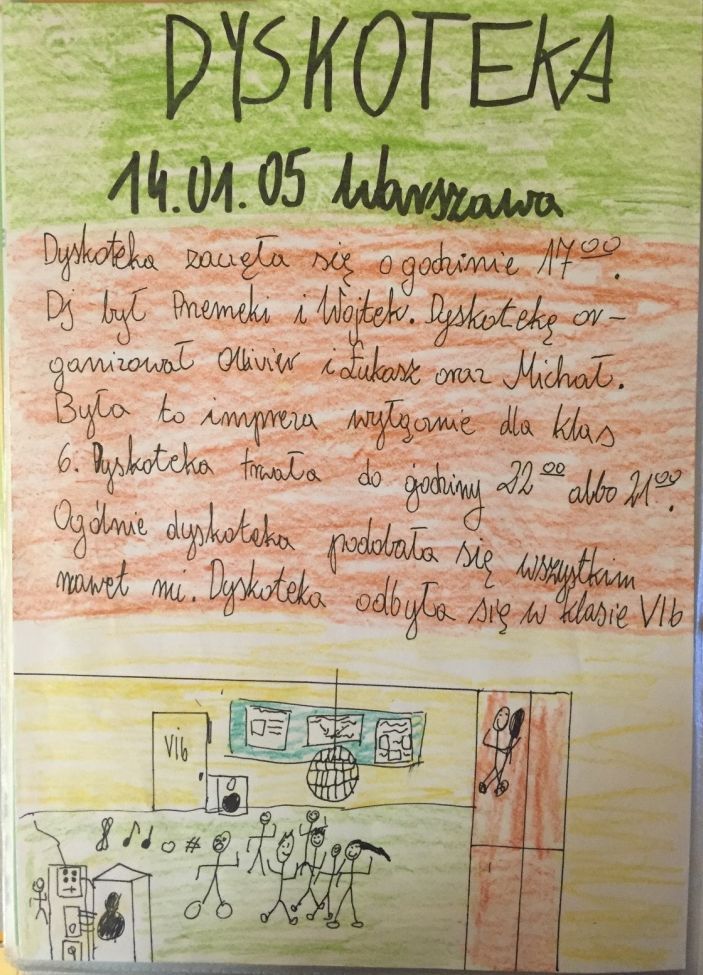 DYSKOTEKA
14.01.05 Warszawa
Dyskoteka zaczęła się o godzinie 17⁰⁰.
Dj był Pnemeki i Wojtek. Dyskotekę or-
ganizował Olivier i Łukasz oraz Michał.
Była to impreza wyłącznie dla klas
6. Dyskoteka trwała do godziny 22⁰⁰ albo 21⁰⁰.
Ogólnie dyskoteka podobała się wszystkim
nawet mi. Dyskoteka odbyła się w klasie VIb
VIb